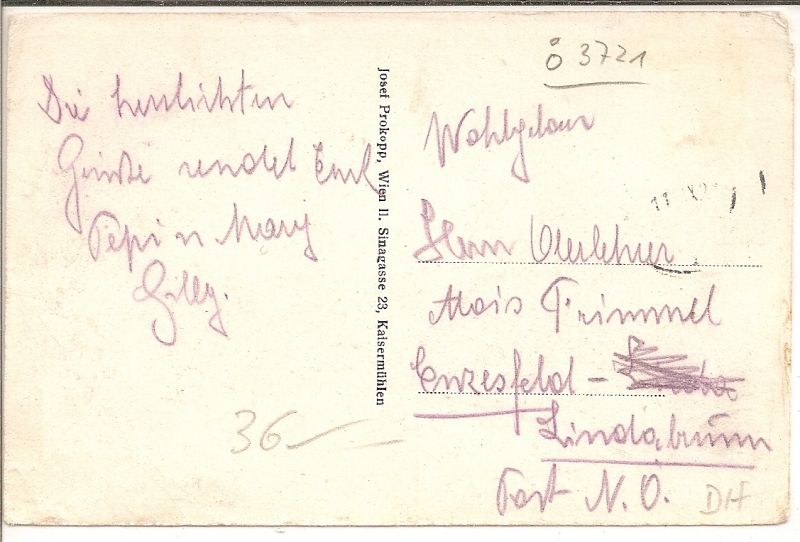 Ö 3721
Die herzlichsten
Grüße sendet Euch
Pepi u Mary
Gilly.
Josef Prokopp, Wien II. Sinagasse 23, Kaisermühlen
Wohlgeboren
Herrn Oberlehrer
Alois Trimmel
Enzesfeld -
Lindabrunn
Post N. Ö.
36
DH